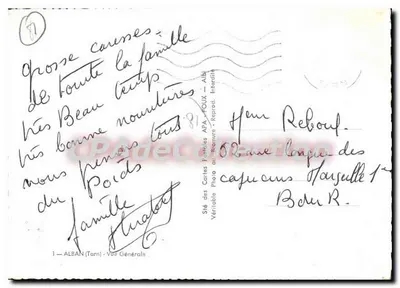 81
grosse caresses.
de toute la famille
très Beau temps
très bonne nourritures
nous prenons tous
du Poids
famille
1 - ALBAN (Tarn) - Vue Générale
Sté des Cartes Postales APA-POUX - ALBI
Véritable Photo au Bromure - Reprod. Interdite
Meur Reboul.
62 rue longue des
capucins Marseille 1er
B du R.